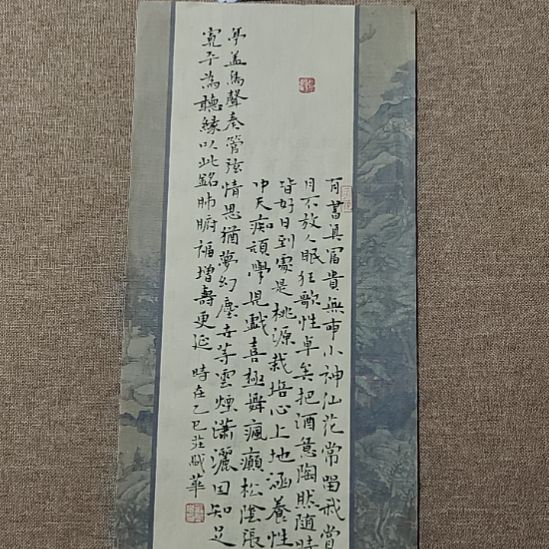 有書真富貴無事小神仙花常留我賞
月不放人眠狂歌性卓矣把酒意陶然隨時
皆好日到處是桃源栽培心上地涵養性
中天痴頑學兒戲喜極舞瘋癲松陰張
琴蓋鳥聲奏管弦情思猶夢幻塵世等雲煙瀟灑因知足
寬平為聽緣以此銘肺腑福增壽更延 時在乙巳莊 華